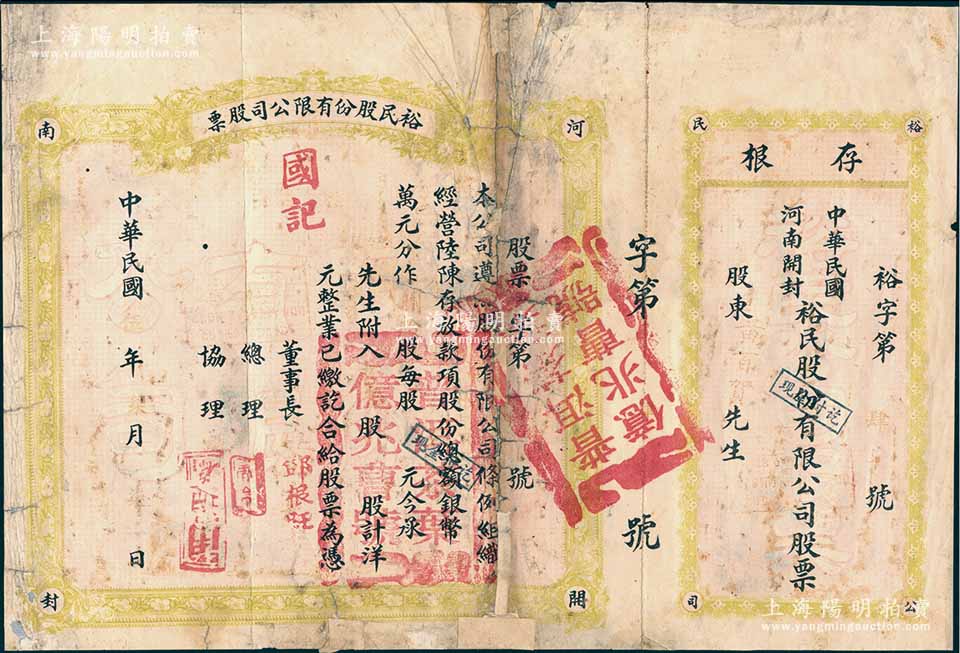 上海陽明拍賣
www.yangmingauction.com
裕民公司
存根
裕字第 肆 號
中華民國
河南開封
裕民股份有限公司股票
股東 先生
現 付訖
字第 號
億兆
河南開封
裕民股份有限公司股票
股票 字第 號
本公司遵照股份有限公司條例組織
經營陸陳存放款項股份總額銀幣
萬元分作 股每股 元今承
先生附入 股 股計洋
元整業已繳訖合給股票為憑
國記
董事長
總理
協理
中華民國 年 月 日
億兆
上海陽明拍賣
www.yangmingauction.com
上海陽明拍賣
www.yangmingauction.com